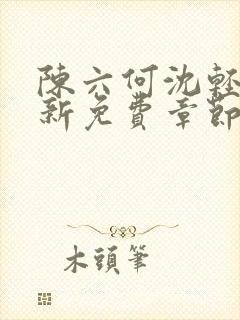 陳六何沈輕
新免費章節
木頭筆